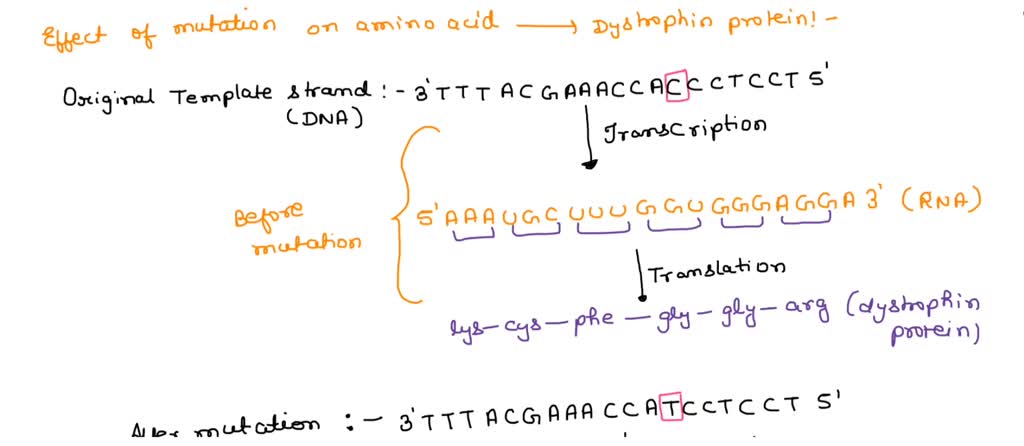 Effect of mutation on amino acid → Dystrophin protein! -
Original Template strand :- 3' T T T A C G A A A C C A C C C T C C T 5'
(DNA)
Transcription
Before
mutation
5' A A A U G C U U U G G U G G G A G G A 3' (RNA)
Translation
lys - cys - phe - gly - gly - arg (dystrophin
protein)
mutation :- 3' T T T A C G A A A C C A T C C T C C T 5'